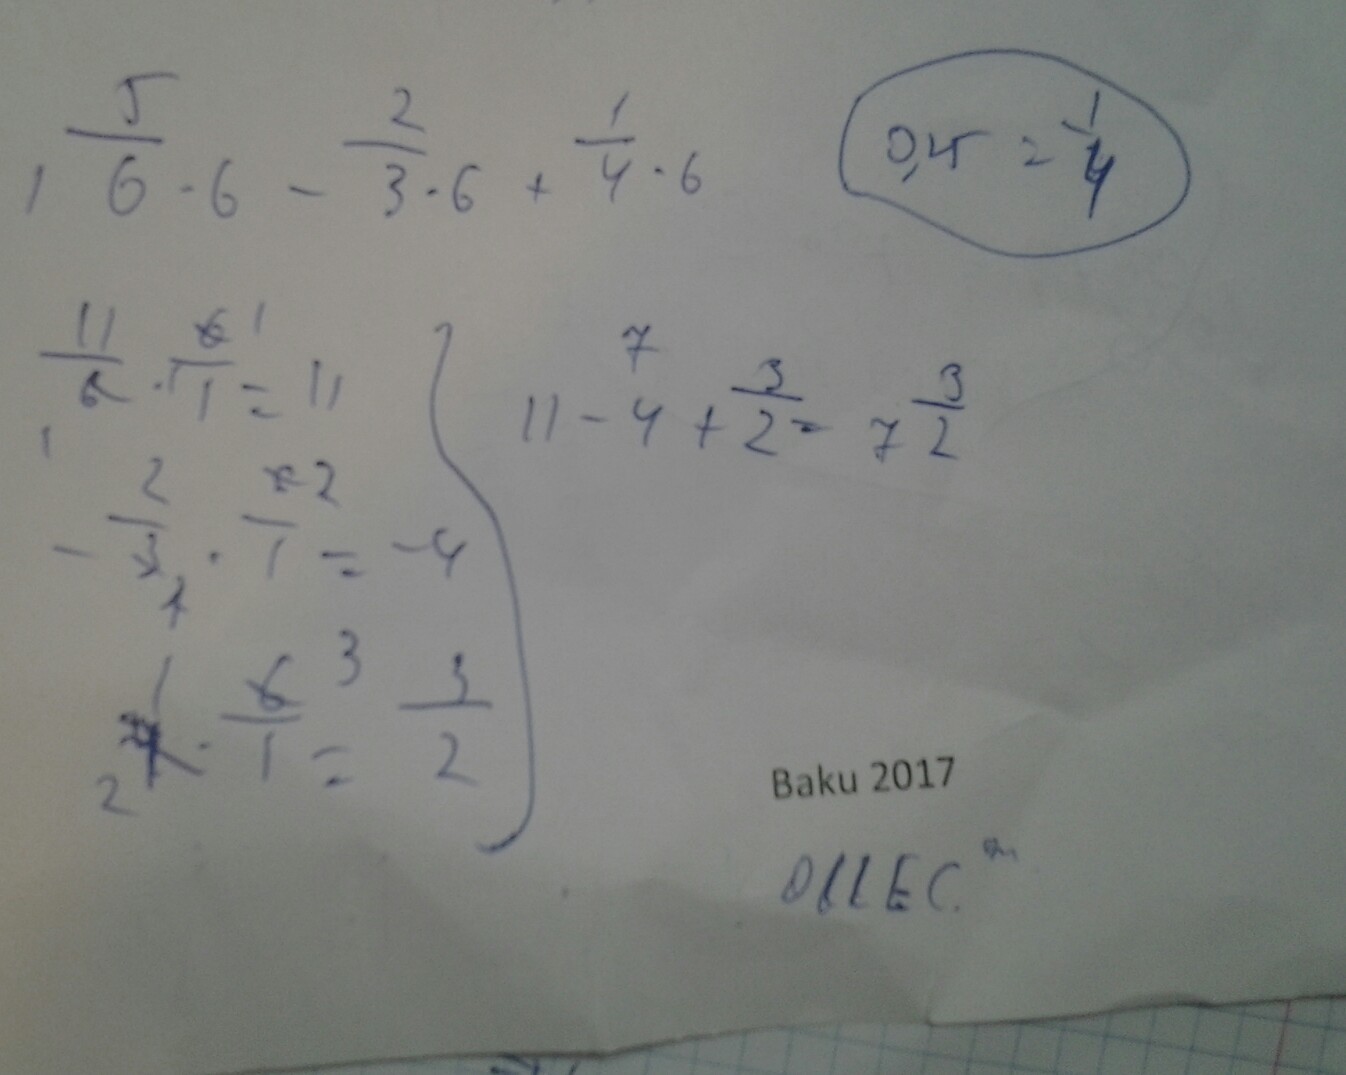 1 5/6 · 6 - 2/3 · 6 + 1/4 · 6
11/6 · 6/1 = 11
- 2/3 · 6/1 = -4
1/4 · 6/1 = 3/2
11 - 4 + 3/2 = 7 3/2
7
Baku 2017